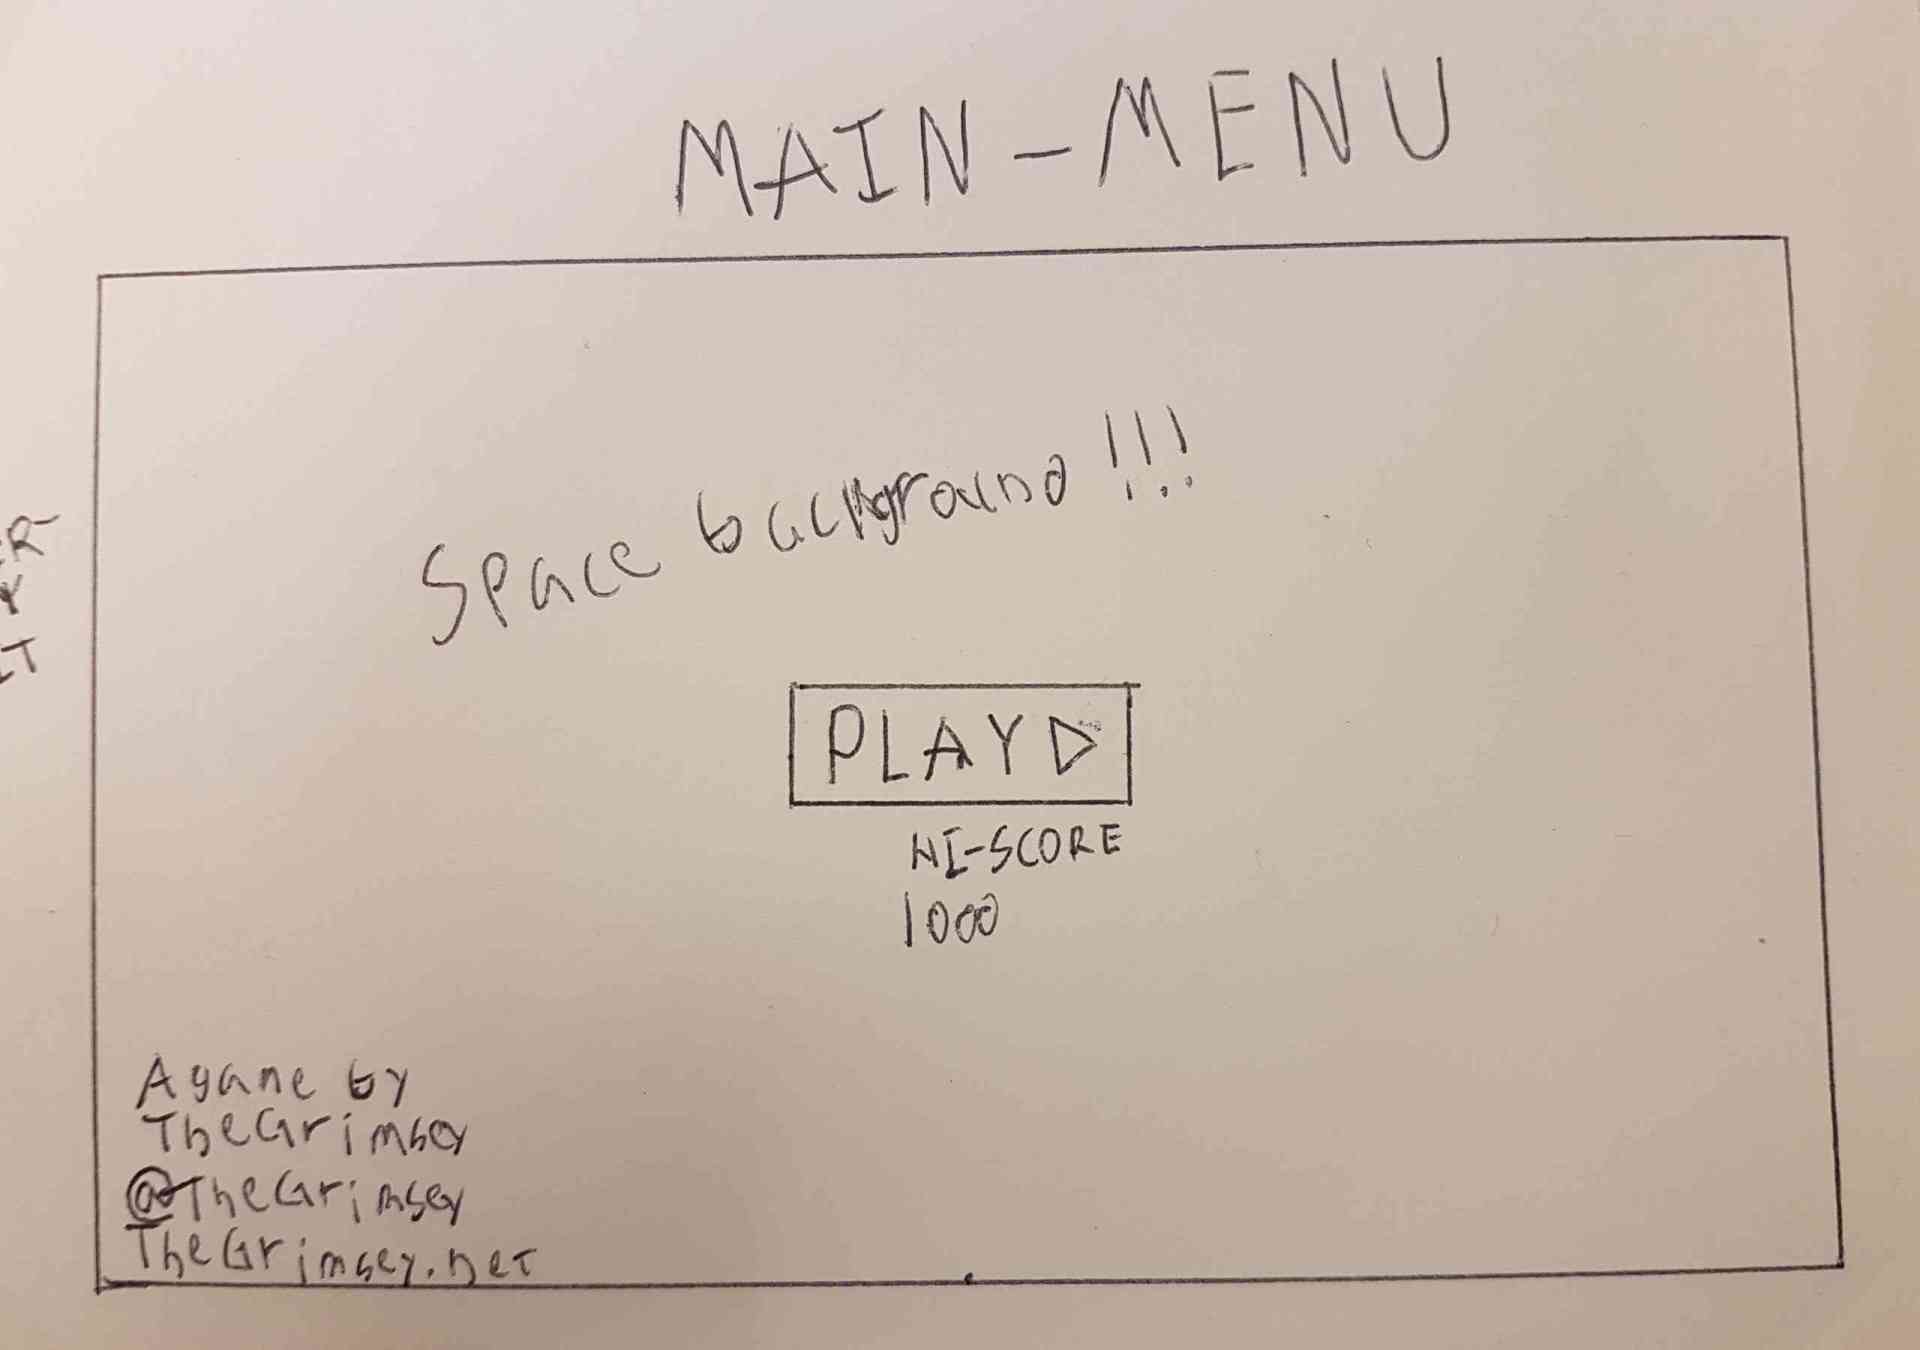 MAIN-MENU
Space background!!!
PLAY
HI-SCORE
1000
A game by
TheGrimsey
@TheGrimsey
TheGrimsey.net